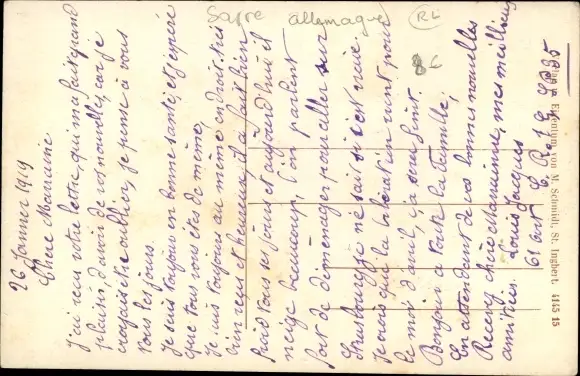 Sarre allemagne RL
86
26 Janvier 1919
Chère Marraine
J'ai reçu votre lettre qui m'a fait grand
plaisir, d'avoir de vos nouvelles, car je
croyais être oublier, je pense à vous
tous les jours.
Je suis toujours en bonne santé, et espère
que tous vous êtes de même,
Je suis toujours au même endroit, très
bien reçu et heureux, il a fait bien
froid tous ses jours et aujourd'hui il
neige beaucoup, l'on parlent
fort de déménager pour aller sur
Strasbourg je ne sait si s'est vraie
Je crois que la libération vient pour
le mois d'avril, ça sera
Bonjour a toute la famille,
En attendant de vos bonnes nouvelles
Recevez chère Marraine, mes meilleures
amitiés. Louis Jacques
61 Art
S.P 235
Eigentum von M. Schmidt, St. Ingbert. 4145 15